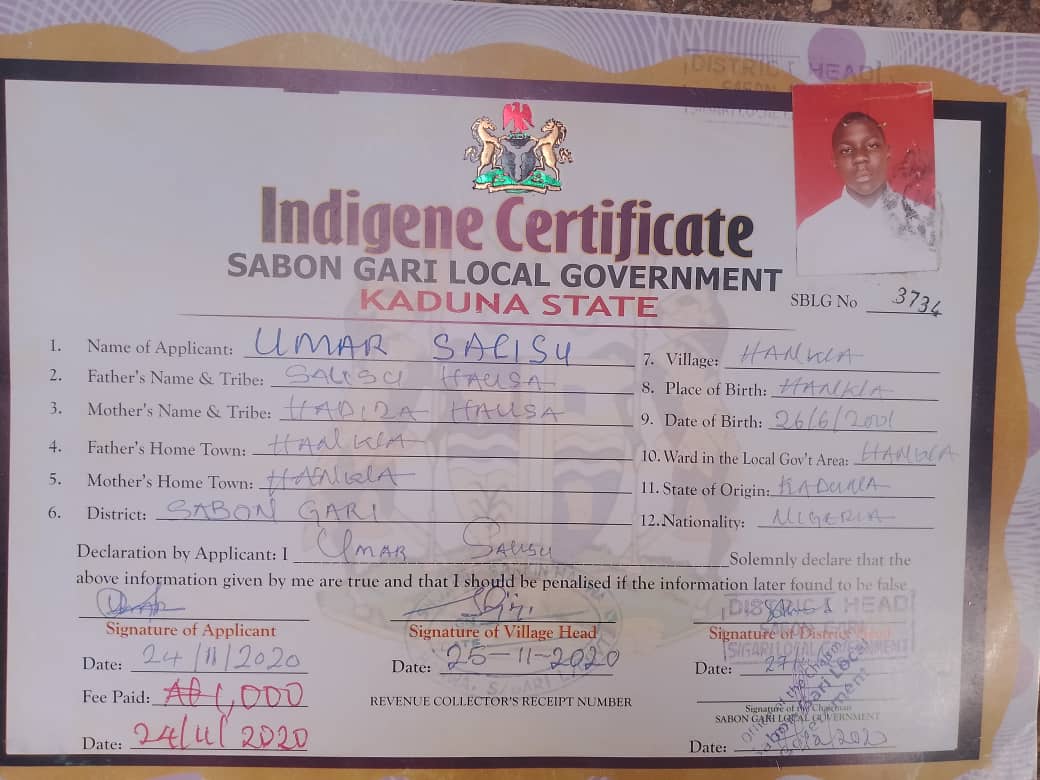 DISTRICT HEAD
Indigene Certificate
SABON GARI LOCAL GOVERNMENT
KADUNA STATE
SBLG No 3734
1. Name of Applicant: UMAR SALISU
2. Father's Name & Tribe: SALISU HAUSA
3. Mother's Name & Tribe: HADIZA HAUSA
4. Father's Home Town: HANKWA
5. Mother's Home Town: HANKWA
6. District: SABON GARI
7. Village: HANKWA
8. Place of Birth: HANKWA
9. Date of Birth: 26/6/2001
10. Ward in the Local Gov't Area: HANKWA
11. State of Origin: KADUNA
12. Nationality: NIGERIA
Declaration by Applicant: I UMAR SALISU Solemnly declare that the
above information given by me are true and that I should be penalised if the information later found to be false
DISTRICT HEAD
Signature of Applicant
Signature of Village Head
Signature of District
Date: 24/11/2020
Date: 25-11-2020
Date: 27/
Fee Paid: 1,000
REVENUE COLLECTOR'S RECEIPT NUMBER
Signature of the Chairman
SABON GARI LOCAL GOVERNMENT
Date: 24/11/2020
Date: /2020